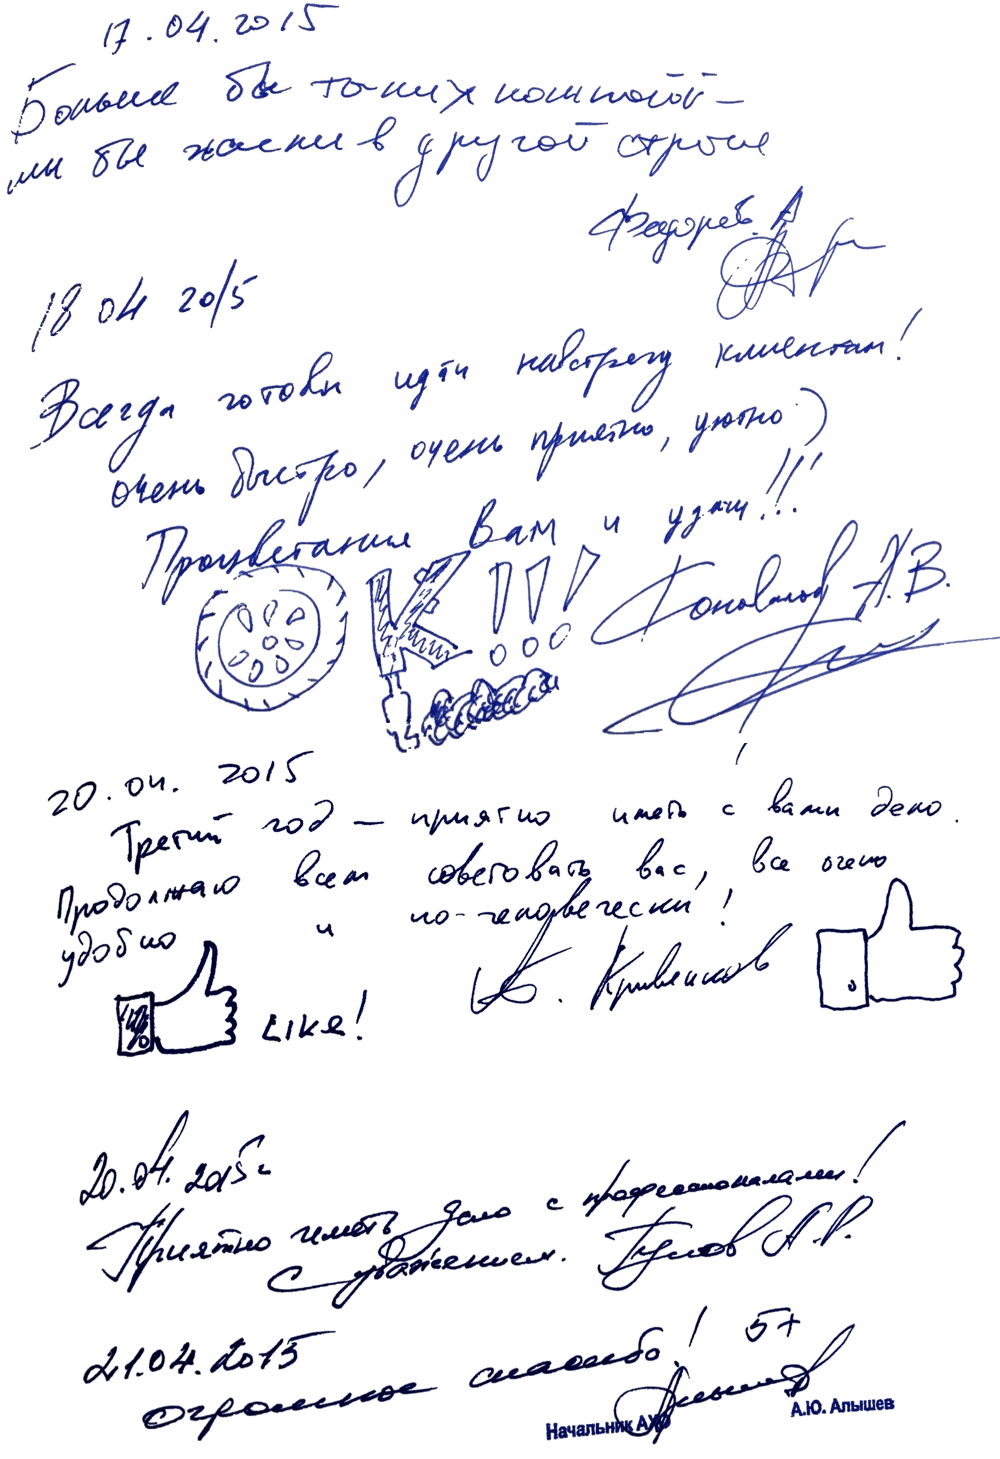 17.04.2015
Больше бы таких компаний –
мы бы жили в другой стране
Федорев. А
18 04 2015
Всегда готовы идти навстречу клиентам!
очень быстро, очень приятно, уютно)
Процветания Вам и удачи!!!
ОК!!! Коновалов А.В.
20.04. 2015
Третий год – приятно иметь с вами дело.
Продолжаю всем советовать вас, все очень
удобно и по-человечески!
А. Кривенков
LIKE!
20.04.2015г
Приятно иметь дело с профессионалами!
С уважением. А.Р.
21.04.2015
Огромное спасибо! 5+
Начальник АХО А.Ю. Алышев